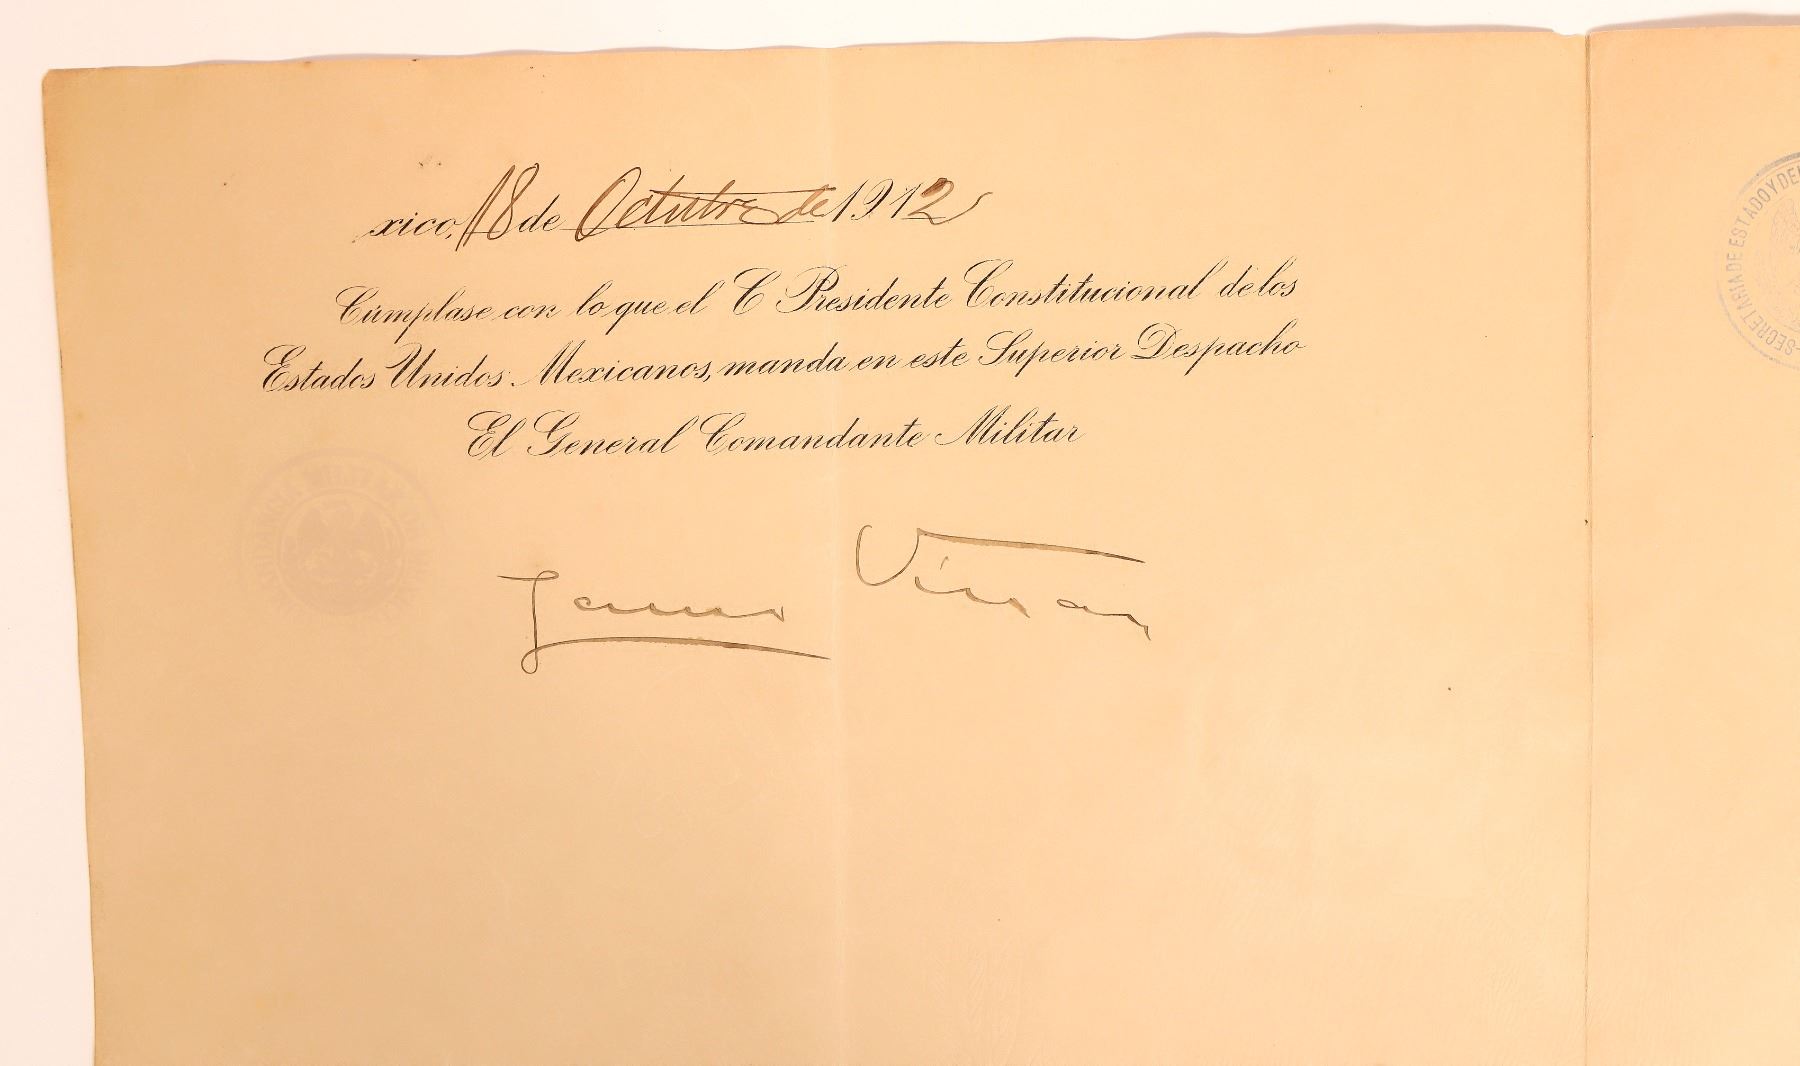 xico, 18 de Octubre de 1912
Cúmplase con lo que el C. Presidente Constitucional de los
Estados Unidos Mexicanos, manda en este Superior Despacho
El General Comandante Militar
SECRETARIA DE ESTADO Y DEL